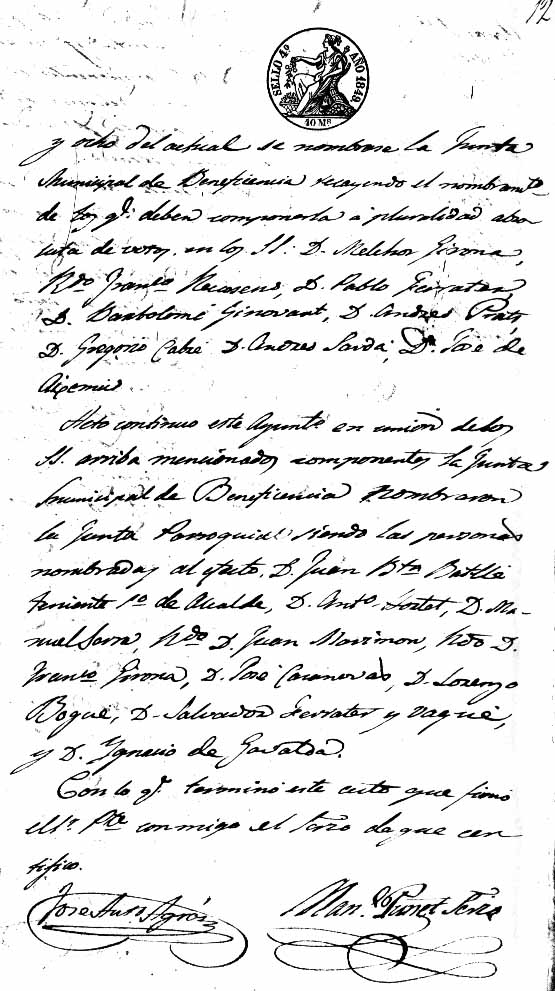 12
SELLO 4º AÑO 1849
40 Mˢ
y ocho del actual se nombrase la Junta
Municipal de Beneficencia recayendo el nombramtº
de los qº deben componerla á pluralidad abso
luta de votos en los SS: D. Melchor Girona,
Rdº Francº Recasens, D. Pablo Ferrater
D. Bartolomé Ginovart, D. Andres Prats
D. Gregorio Cabré D. Andres Sardá, Dⁿ José de
Aixemus
Acto continuo este Ayuntº en union de los
SS. arriba mencionados componentes la Junta
Municipal de Beneficencia nombraron
la Junta Parroquial siendo las personas
nombradas al efecto, D. Juan Btª Batlle
teniente 1º de Alcalde, D. Antº Fortet, D. Ma-
nuel Sarra, Rdº D. Juan Marimon, Rdo D.
Francº Girona, D. José Casanovas, D. Lorenzo
Boqué, D. Salvador Ferrater y Vaqué,
y D. Ygnacio de Gavaldá.
Con lo qº terminó este acto que firmó
el Sr. Pte conmigo el Srio de que cer
tifico.
José Antº
Manˡ Punet Srio